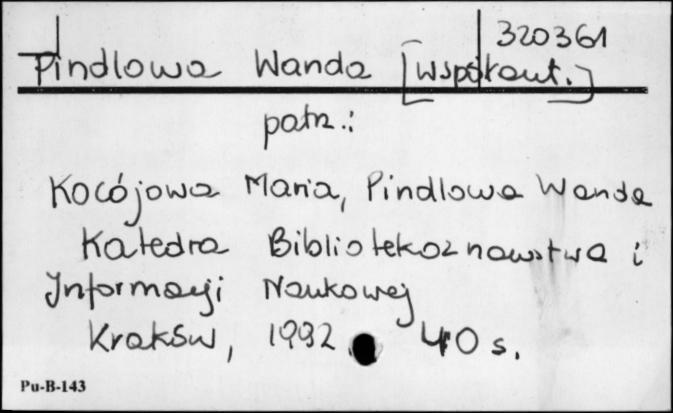 320361
Pindlowa Wanda [współaut.]
patrz.:
Kocójowa Maria, Pindlowa Wanda
Katedra Bibliotekoznawstwa i
Informacji Naukowej
Kraków, 1992. 40 s.
Pu-B-143